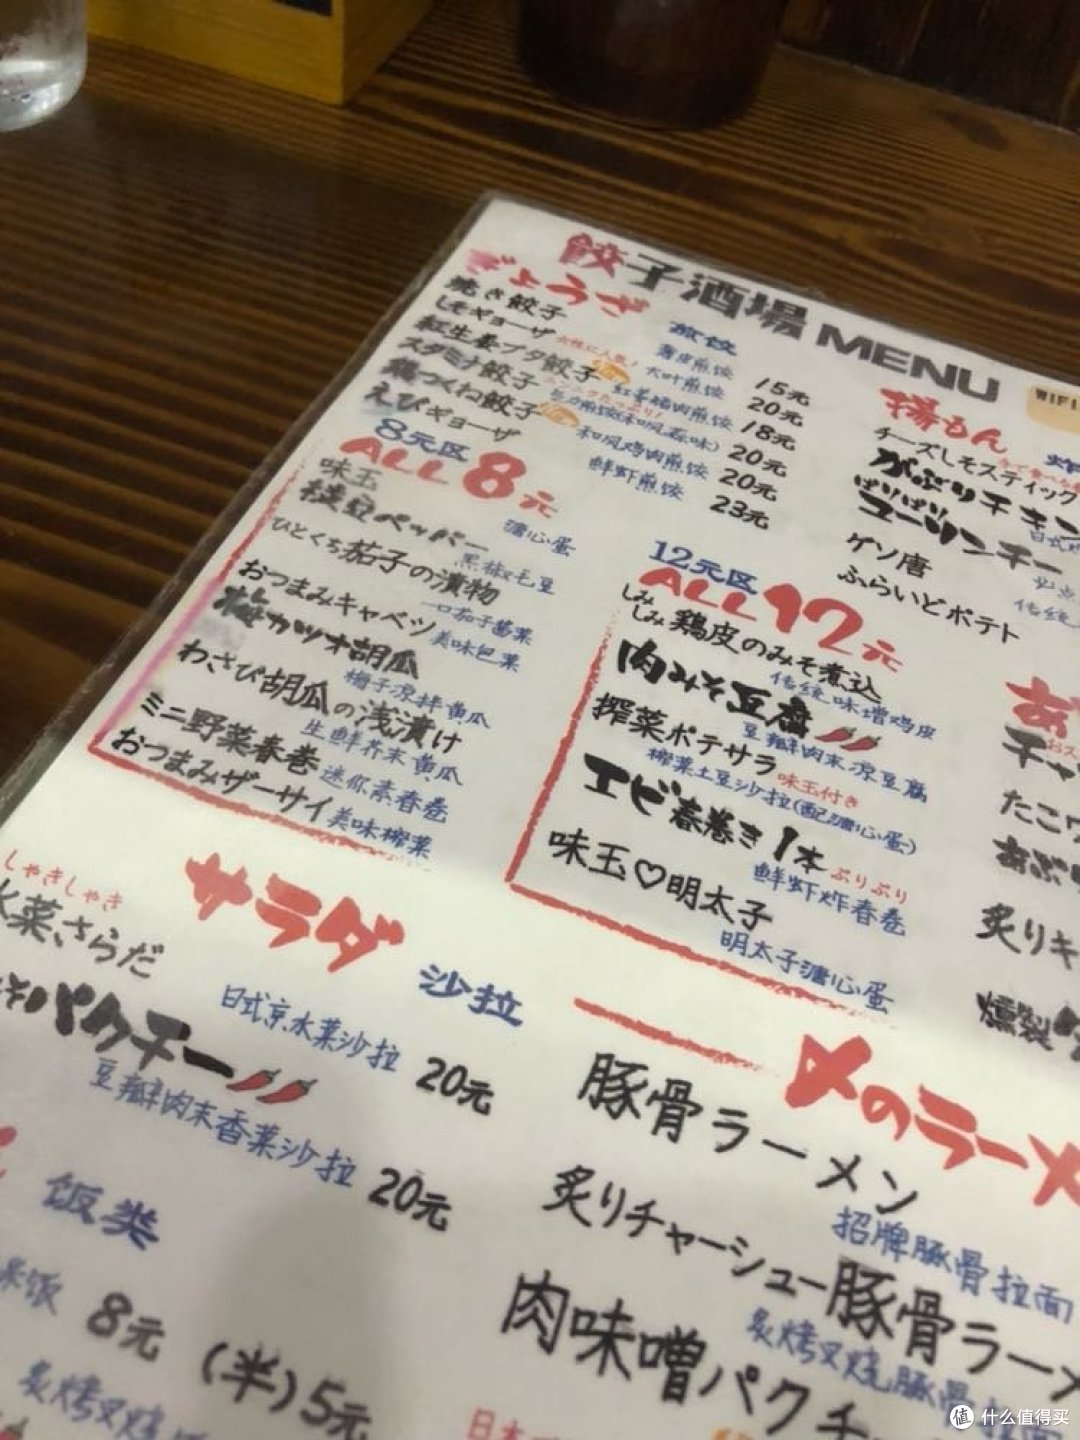 餃子酒場 MENU
WiFi
ぎょうざ
煎饺
焼き餃子
薄皮煎饺 15元
しそギョーザ
大叶煎饺 20元
女性に人気!
紅生姜ブタ餃子
红姜猪肉煎饺 18元
スタミナ餃子
20元
鶏つくね餃子
和风鸡肉煎饺 20元
えびギョーザ
鲜虾煎饺 23元
8元区
ALL 8元
味玉
溏心蛋
枝豆ペッパー
黑椒毛豆
ひとくち茄子の漬物
一口茄子酱菜
おつまみキャベツ
美味包菜
梅カツオ胡瓜
梅子凉拌黄瓜
わさび胡瓜の浅漬け
生鲜芥末黄瓜
ミニ野菜春巻
迷你素春卷
おつまみザーサイ
美味榨菜
12元区
ALL 12元
しみしみ鶏皮のみそ煮込
传统味增鸡皮
肉みそ豆腐
豆瓣肉末凉豆腐
搾菜ポテサラ 味玉付き
榨菜土豆沙拉(配溏心蛋)
エビ春巻き1本 ぷりぷり
鲜虾炸春卷
味玉♡明太子
明太子溏心蛋
揚もん
炸
チーズしそスティック
がぶりチキン
ぱりぱり
ユーリンチー
ゲソ唐
ふらいどポテト
たこ
あぶり
炙りキ
燻製
サラダ 沙拉
しゃきしゃき
水菜さらだ
日式京水菜沙拉 20元
パクチー
豆瓣肉末香菜沙拉 20元
饭类
8元 (半)5元
炙烤叉烧
〆のラーメ
豚骨ラーメン
招牌豚骨拉面
炙りチャーシュー豚骨ラーメ
炙烤叉烧豚骨拉面
肉味噌パクチ
日本
值 什么值得买